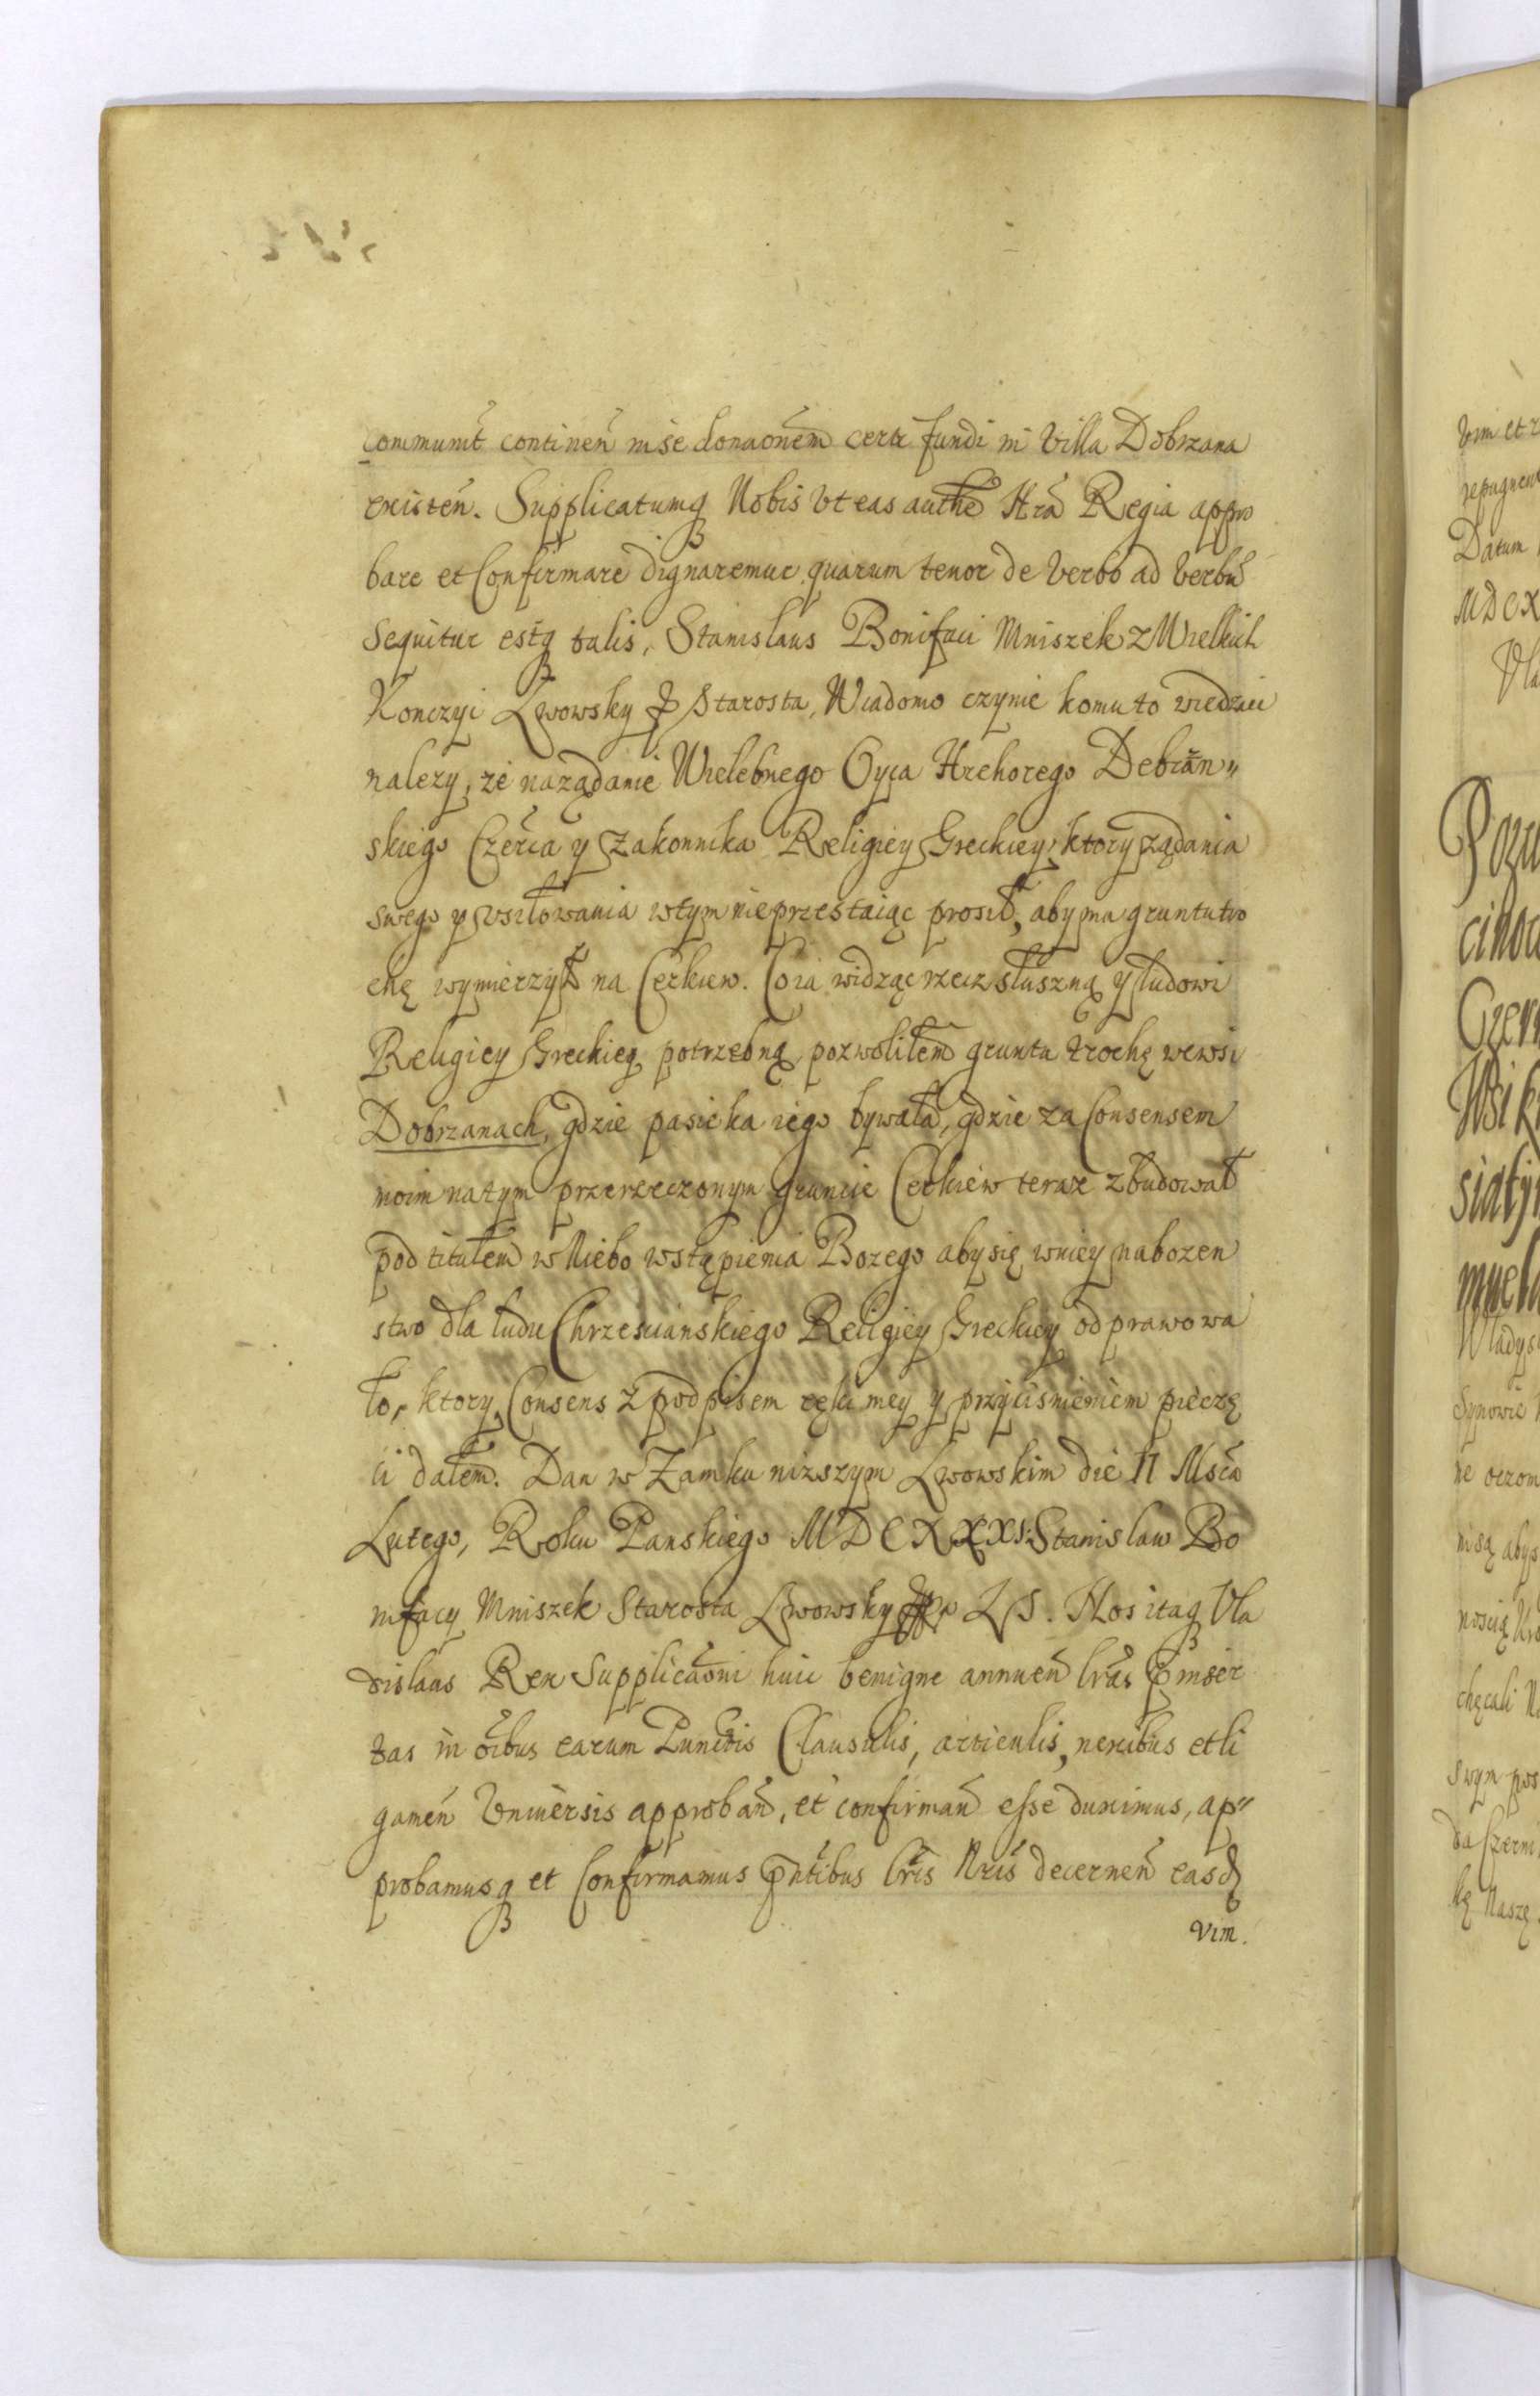 communit̃ continen̄ in se donaōnem certi fundi in Villa Dobrzana
existen̄. Supplicatumq̃ Nobis Vt eas auth̃e Nr̃a Regia appro
bare et Confirmare dignaremur, quarum tenor de Verbo ad Verbũ
Sequitur estq̃ talis, Stanislaus Bonifaci Mniszek z Wielkich
Konczyc Lwowsky &c Starosta, Wiadomo czynie komu to wiedziec
nalezy, ze na ządanie Wielebnego Oyca Hrehorego Debrzan„
skiego Czerca y Zakonnika Religiey Greckiey, ktory ządania
swego y vsiłowania w tym nie przestaiąc prosił, abym a gruntu tro
chę wymierzył na Cerkiew. Co ia widząc rzecz słuszną y ludowi
Religiey Greckiey potrzebną pozwoliłem gruntu trochę we wsi
Dobrzanach, gdzie pasieka iego bywała, gdzie za Consensem
moim na tym przerzeczonym gruncie Cerkiew teraz zbudował
pod titułem w Niebo wstąpienia Bozego aby się w niey nabozen
stwo dla ludu Chrzescianskiego Religiey Greckiey odprawowa
ło, ktory Consens z podpisem ręki mey y przycisnieniem pieczę
ci dałem. Dan w Zamku nizszym Lwowskim die II Msca
Lutego, Roku Panskiego MDCXXXI: Stanislaw Bo
nifacy Mniszek Starosta Lwowsky LS. Nos itaq̃ Vla
dislaus Rex Supplicaōni huic benigne annuen̄ lr̃as p̃inser
tas in oĩbus earum Punctis Clausulis, articulis, nexibus et li
gamen̄ Vniuersis approban̄, et confirman̄ esse duximus, ap„
probamusq̃ et Confirmamus p̃ntibus lr̃is Nr̃is decernen̄ easd̃
vim.